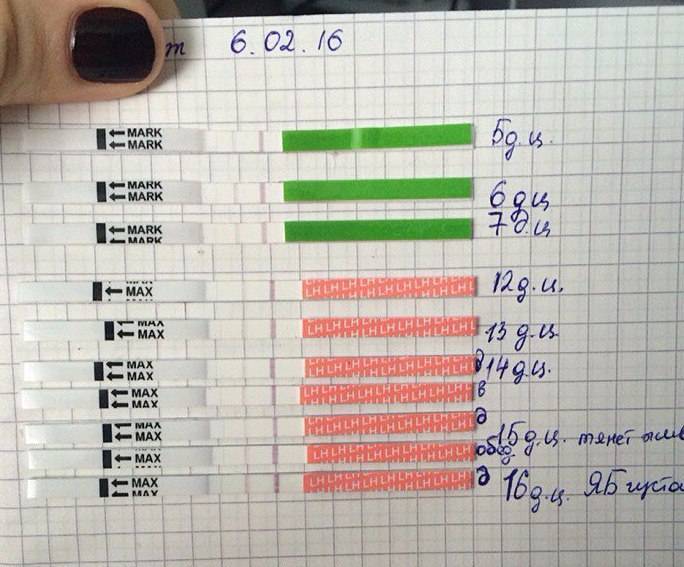 т 6.02.16
MARK
MARK
5 д.ц.
MARK
MARK
6 дц
MARK
MARK
7 д.ц
MAX
LH LH LH LH LH LH LH LH LH
12 д.ц.
MAX
MAX
LH LH LH LH LH LH LH LH LH
13 д.ц
MAX
MAX
LH LH LH LH LH LH LH LH LH
д 14 д.ц.
MAX
MAX
LH LH LH LH LH LH LH LH LH
в
MAX
MAX
LH LH LH LH LH LH LH LH LH
д
15 д.ц. тянет
MAX
LH LH LH LH LH LH LH LH LH
обед
MAX
MAX
LH LH LH LH LH LH LH LH LH
д 16 д.ц. ЯБ густа